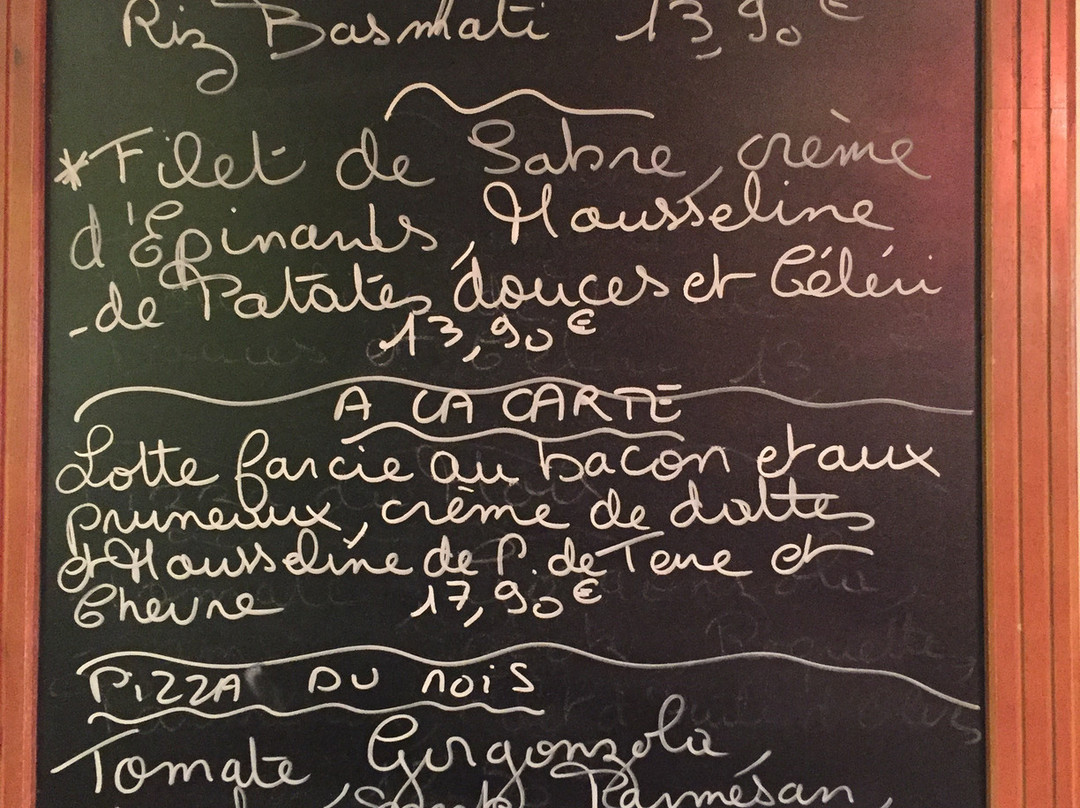 Riz Basmati 13,90€
*Filet de Sabre, crème
d'Épinards, Mousseline
de Patates douces et Céléri
13,90€
A LA CARTE
Lotte farcie au bacon et aux
pruneaux, crème de dattes
et Mousseline de P. de Terre et
Chevre 17,90€
PiZZA DU MOiS
Tomate, Gorgonzola,
Parmésan,